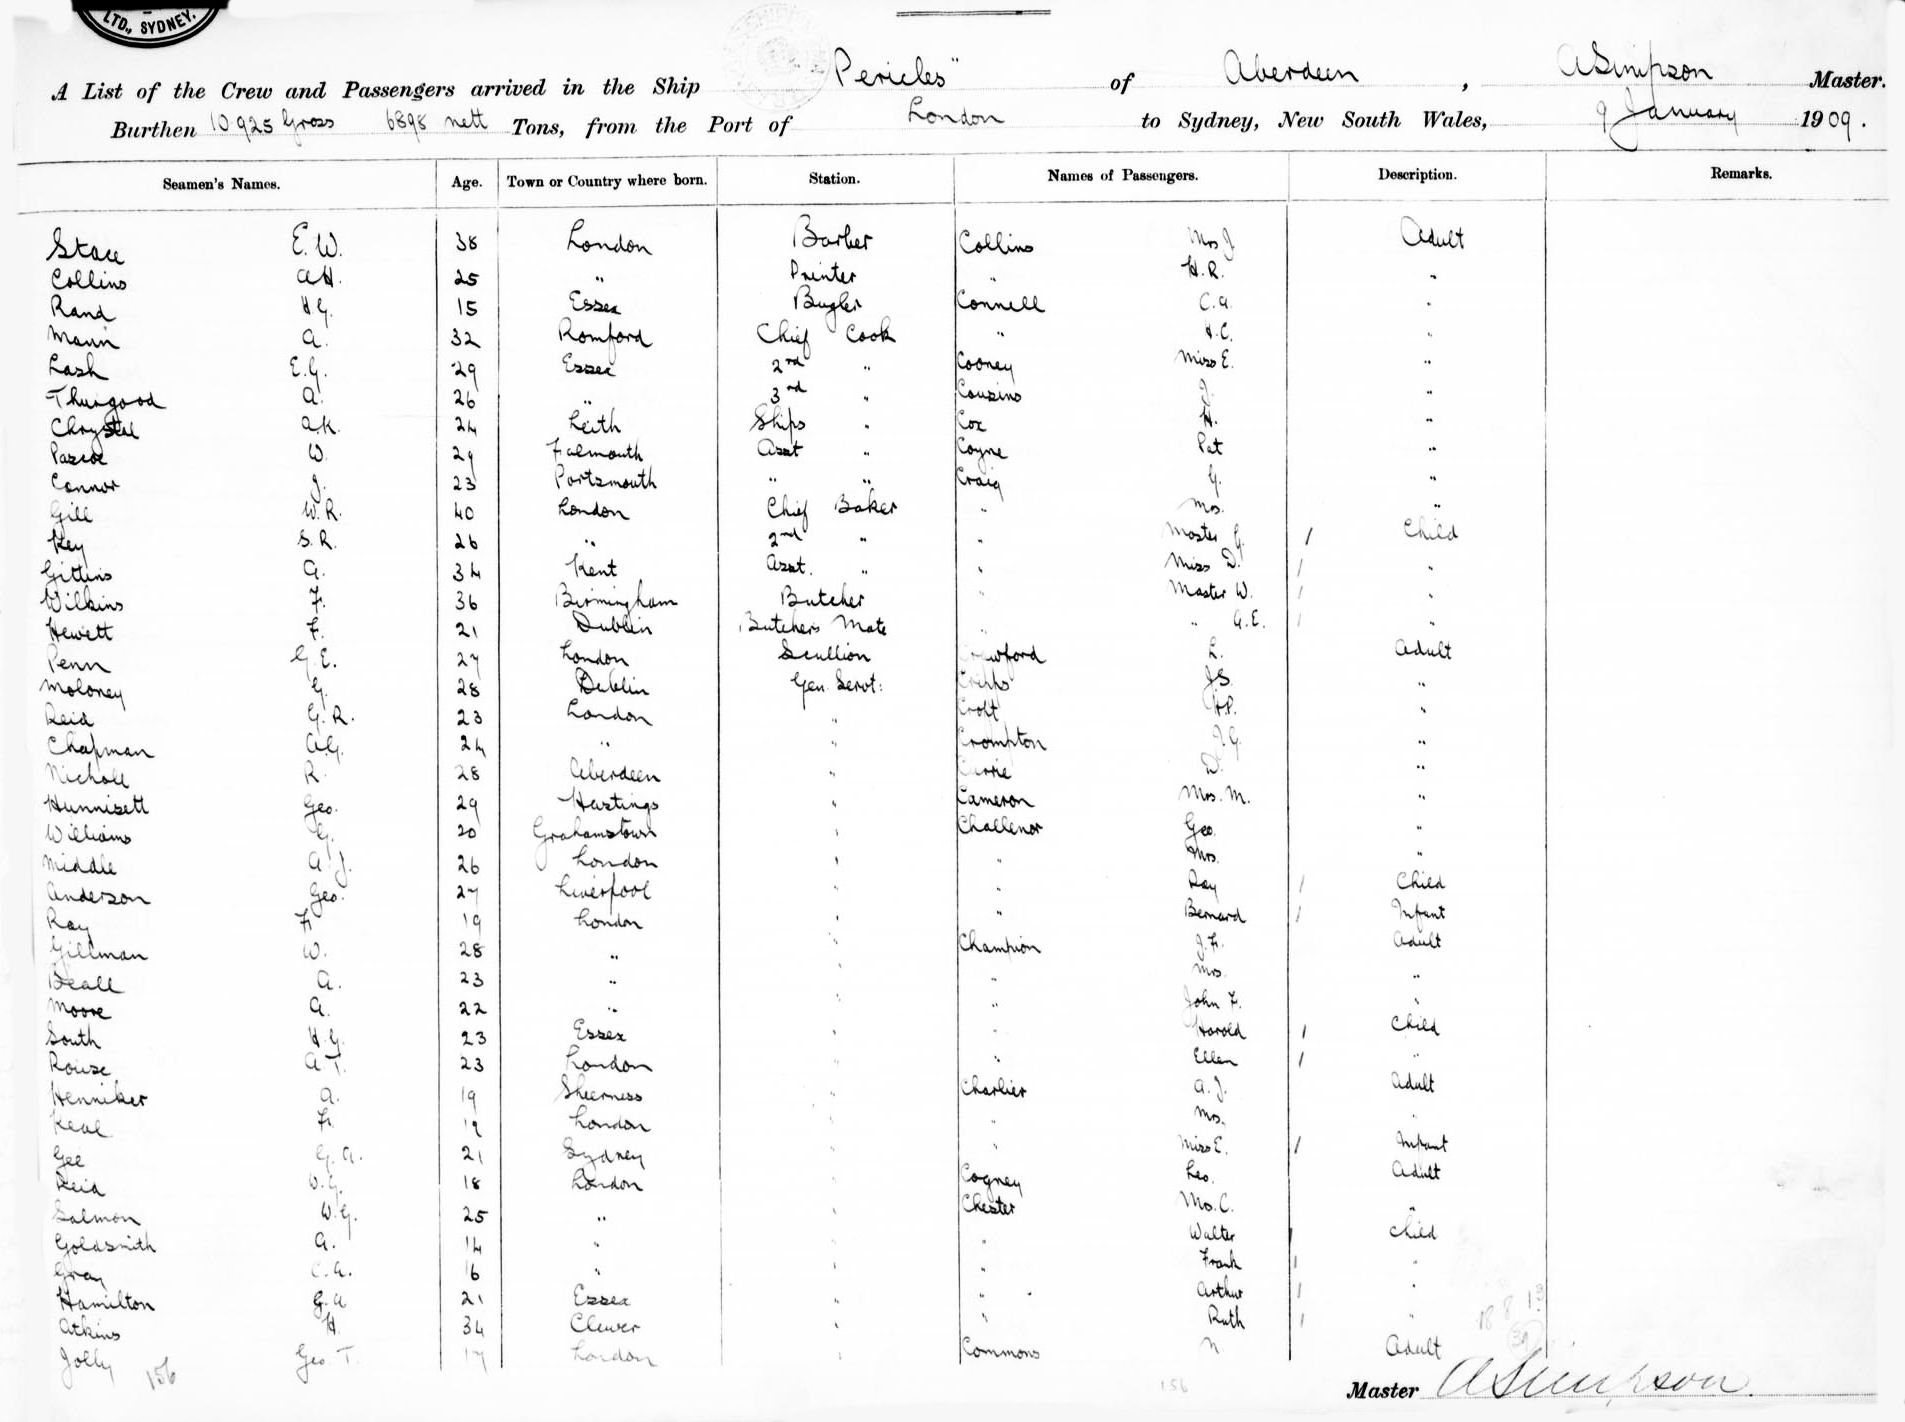 LTD., SYDNEY.
A List of the Crew and Passengers arrived in the Ship "Pericles" of Aberdeen, A Simpson Master.
Burthen 10925 Gross 6898 nett Tons, from the Port of London to Sydney, New South Wales, 9 January 1909.
Seamen's Names. Age. Town or Country where born. Station. Names of Passengers. Description. Remarks.
Stace E. W. 38 London Barber Collins Mrs J. Adult
Collins A H. 25 " Printer " H. R. "
Rand H G. 15 Essex Bugler Connell C. A. "
Mann A. 32 Romford Chief Cook " H. C. "
Lash E. G. 29 Essex 2nd " Cooney Miss E. "
Thurgood A. 26 " 3rd " Cousins J. "
Chrystal A. K. 24 Leith Ships " Cox H. "
Pascoe W. 29 Falmouth Asst " Coyne Pat "
Connor J. 23 Portsmouth " " Craig G. "
Gill W. R. 40 London Chief Baker " Mrs. "
Key S. R. 26 " 2nd " " Master G. / Child
Gittins A. 34 Kent Asst. " " Miss D. / "
Wilkins F. 36 Birmingham Butcher " Master W. / "
Hewett F. 21 Dublin Butchers Mate " " G. E. / "
Penn G. E. 27 London Scullion Crawford L. Adult
Moloney G. 28 Dublin Gen. Servt: Cripps J. S. "
Reid G. R. 23 London " Croft H. P. "
Chapman A. G. 24 " " Crompton J. G. "
Nicholl R. 28 Aberdeen " Currie D. "
Hunnisett Geo. 29 Hastings " Cameron Mrs. M. "
Williams G. 20 Grahamstown " Challenor Geo. "
Middle A J. 26 London " " Mrs. "
Anderson Geo. 27 Liverpool " " Ray / Child
Ray F. 19 London " " Bernard / Infant
Gillman W. 28 " " Champion J. F. Adult
Beall A. 23 " " " Mrs. "
Moore A. 22 " " " John F. "
South H. G. 23 Essex " " Harold / Child
Rouse A T. 23 London " " Ellen / "
Henniker A. 19 Sheerness " Charlier A. J. Adult
Keal F. 19 London " " Mrs. "
Gee G. A. 21 Sydney " " Miss E. / Infant
Reid W. G. 18 London " Cogney Leo. Adult
Salmon W. G. 25 " " Chester Mrs. C. "
Goldsmith A. 14 " " " Walter / Child
Gray C. A. 16 " " " Frank / "
Hamilton G. A 21 Essex " " Arthur / "
Atkins H. 34 Clewer " " Ruth / "
Jolly Geo T. 17 London " Commons Adult
156 156
Master A Simpson.